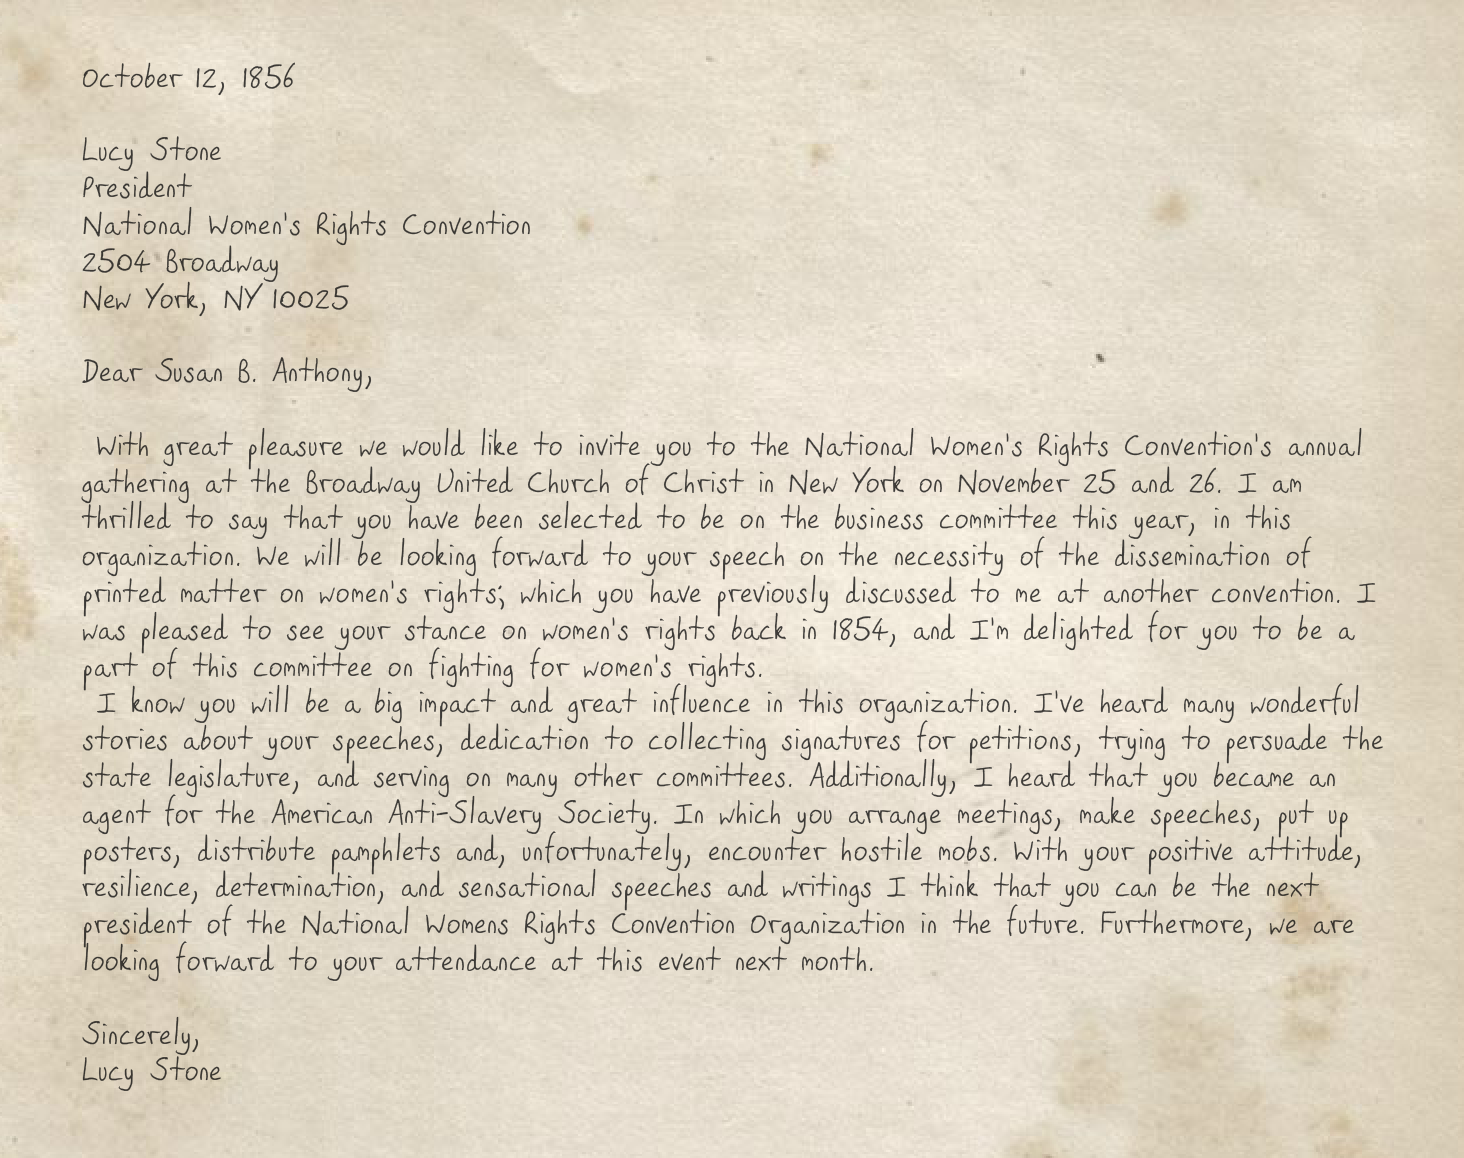 October 12, 1856
Lucy Stone
President
National Women's Rights Convention
2504 Broadway
New York, NY 10025
Dear Susan B. Anthony,
With great pleasure we would like to invite you to the National Women's Rights Convention's annual
gathering at the Broadway United Church of Christ in New York on November 25 and 26. I am
thrilled to say that you have been selected to be on the business committee this year, in this
organization. We will be looking forward to your speech on the necessity of the dissemination of
printed matter on women's rights; which you have previously discussed to me at another convention. I
was pleased to see your stance on women's rights back in 1854, and I'm delighted for you to be a
part of this committee on fighting for women's rights.
I know you will be a big impact and great influence in this organization. I've heard many wonderful
stories about your speeches, dedication to collecting signatures for petitions, trying to persuade the
state legislature, and serving on many other committees. Additionally, I heard that you became an
agent for the American Anti-Slavery Society. In which you arrange meetings, make speeches, put up
posters, distribute pamphlets and, unfortunately, encounter hostile mobs. With your positive attitude,
resilience, determination, and sensational speeches and writings I think that you can be the next
president of the National Womens Rights Convention Organization in the future. Furthermore, we are
looking forward to your attendance at this event next month.
Sincerely,
Lucy Stone